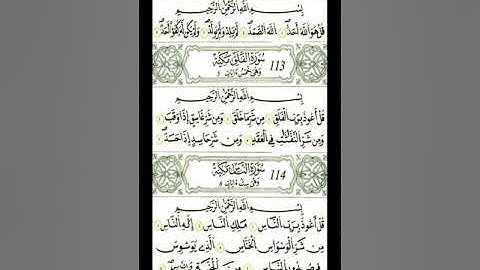 بِسْمِ اللَّهِ الرَّحْمَٰنِ الرَّحِيمِ
قُلْ هُوَ اللَّهُ أَحَدٌ ١ اللَّهُ الصَّمَدُ ٢ لَمْ يَلِدْ وَلَمْ يُولَدْ ٣ وَلَمْ يَكُن لَّهُ كُفُوًا أَحَدٌ ٤
سُورَةُ الْفَلَقِ مَكِّيَّةٌ 113
وَهِيَ خَمْسُ ءَايَاتٍ ٥
بِسْمِ اللَّهِ الرَّحْمَٰنِ الرَّحِيمِ
قُلْ أَعُوذُ بِرَبِّ الْفَلَقِ ١ مِن شَرِّ مَا خَلَقَ ٢ وَمِن شَرِّ غَاسِقٍ إِذَا وَقَبَ ٣
وَمِن شَرِّ النَّفَّٰثَٰتِ فِي الْعُقَدِ ٤ وَمِن شَرِّ حَاسِدٍ إِذَا حَسَدَ ٥
سُورَةُ النَّاسِ مَكِّيَّةٌ 114
وَهِيَ سِتُّ ءَايَاتٍ ٦
بِسْمِ اللَّهِ الرَّحْمَٰنِ الرَّحِيمِ
قُلْ أَعُوذُ بِرَبِّ النَّاسِ ١ مَلِكِ النَّاسِ ٢ إِلَٰهِ النَّاسِ ٣
مِن شَرِّ الْوَسْوَاسِ الْخَنَّاسِ ٤ الَّذِي يُوَسْوِسُ
فِي صُدُورِ النَّاسِ ٥ مِنَ الْجِنَّةِ وَالنَّاسِ